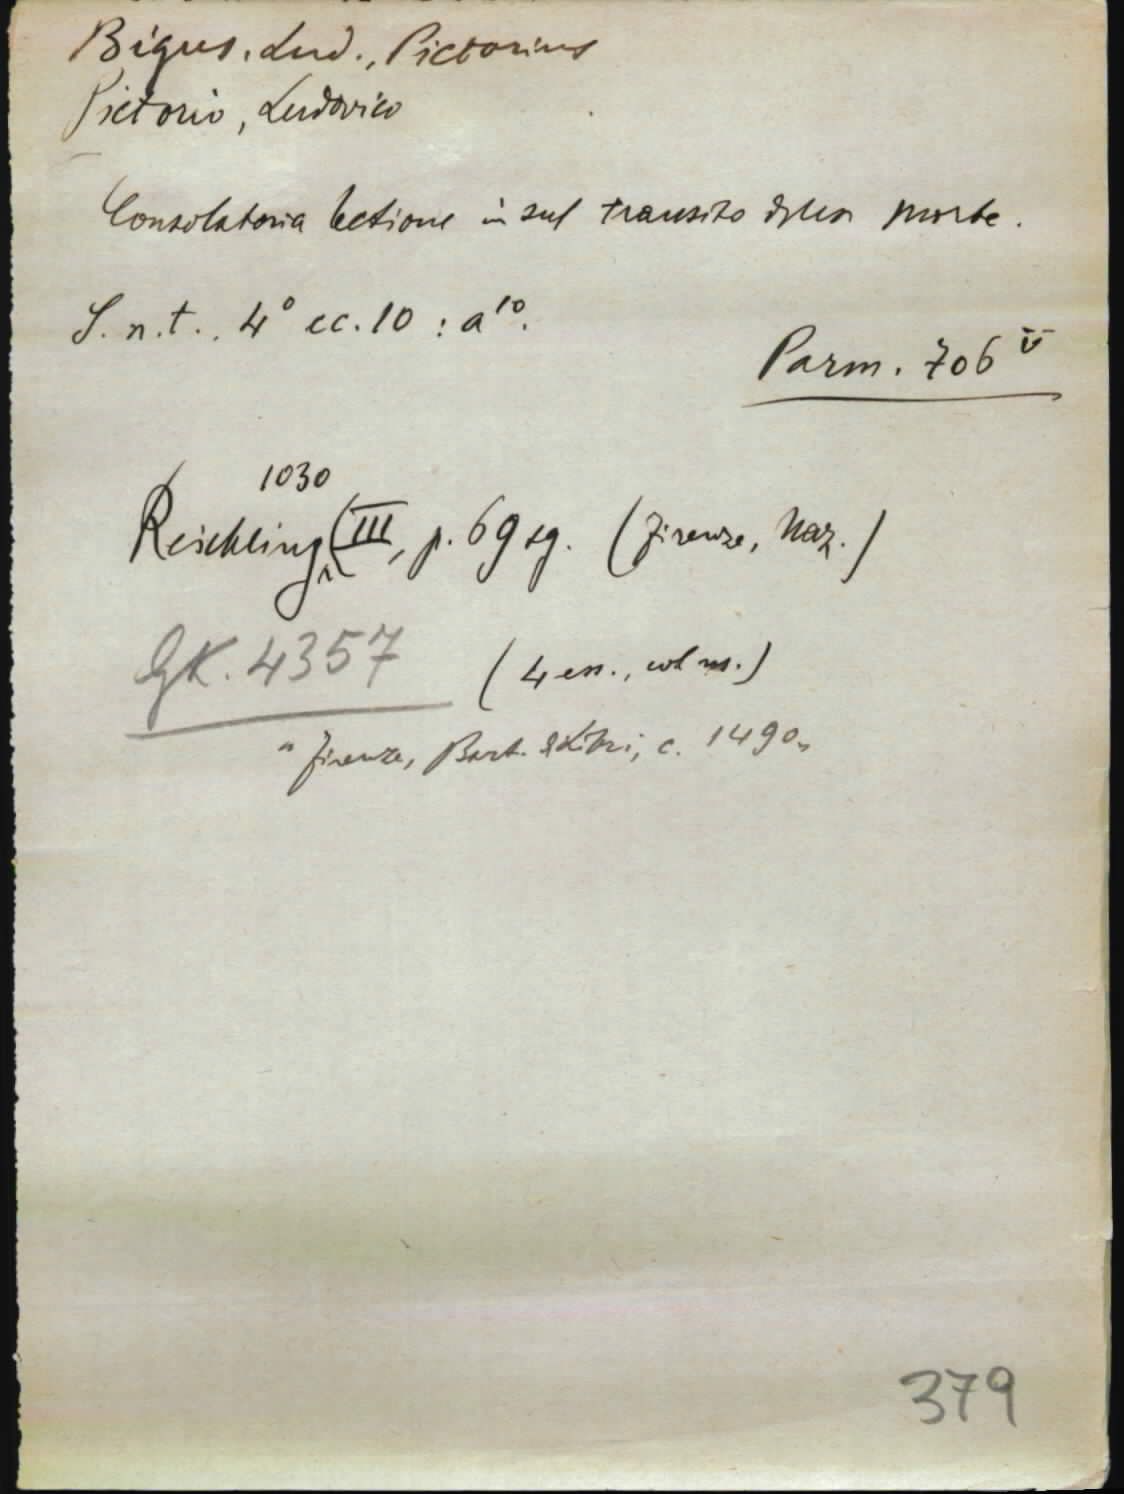 Bigus, Lud., Pictorius
Pictorio, Ludovico
Consolatoria lectione in sul transito della morte.
S. n. t., 4° cc. 10 : a¹⁰.
Parm. 706 V
1030
Reichling (III, p. 69 sg. (Firenze, Naz.)
GK. 4357 (4 es., col ns.)
"Firenze, Bart. de Libri, c. 1490"
379